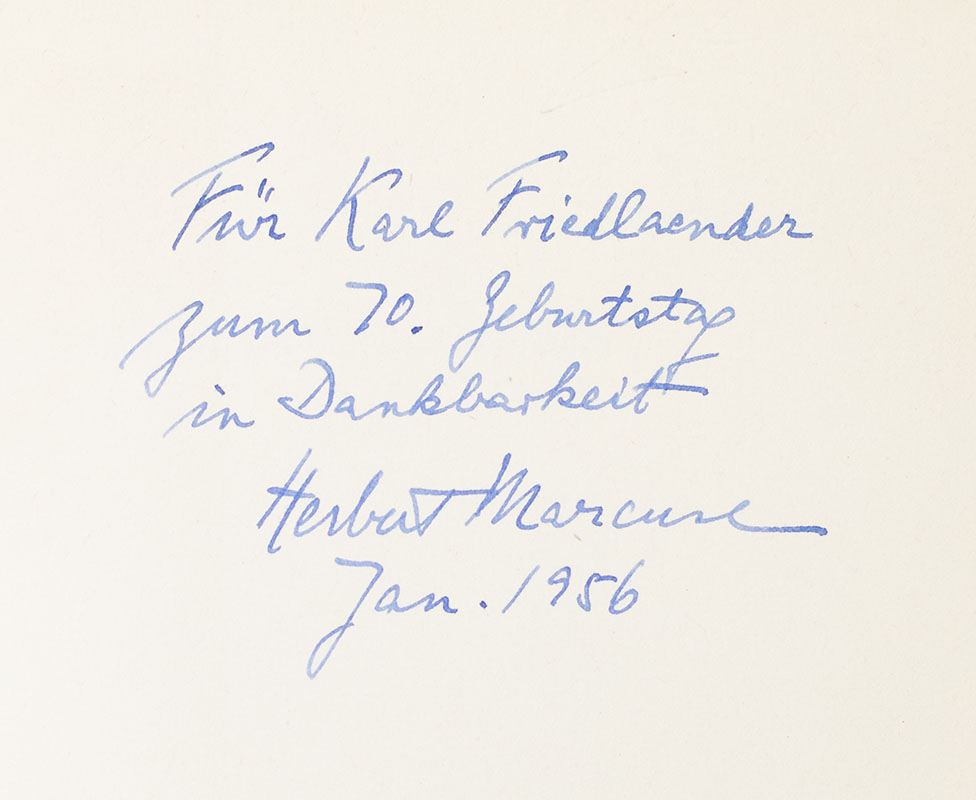 Für Karl Friedlaender
zum 70. Geburtstag
in Dankbarkeit
Herbert Marcuse
Jan. 1956